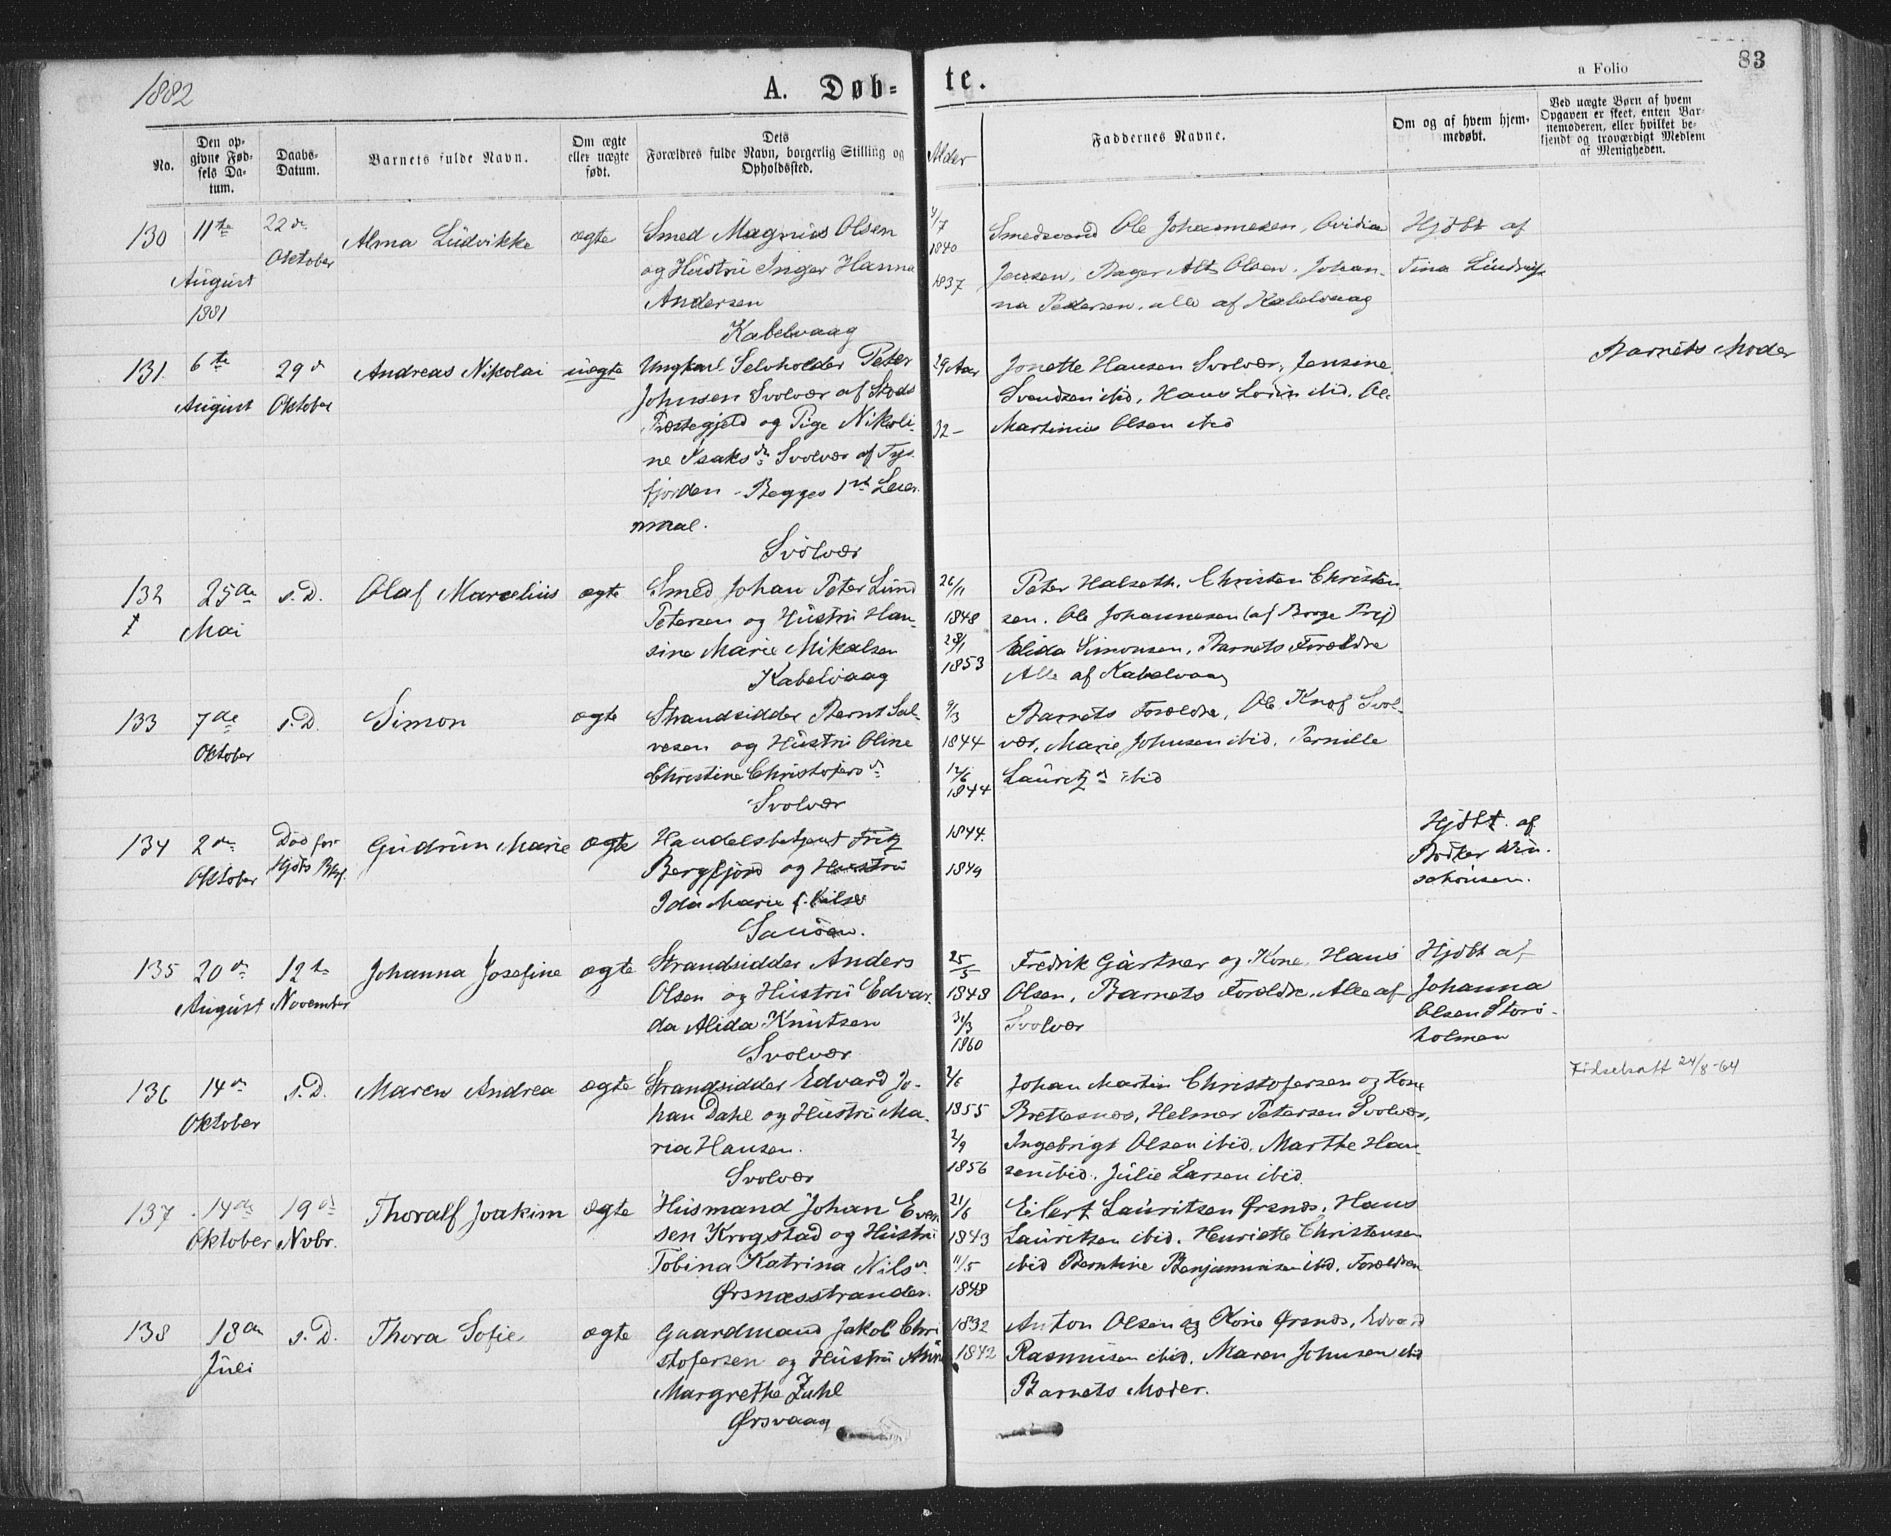 1882
A. Døb-
te.
a Folio
83
No.
Den op-
givne Fød-
sels Da-
tum.
Daabs-
Datum.
Barnets fulde Navn.
Om ægte
eller uægte
født.
Dets
Forældres fulde Navn, borgerlig Stilling og
Opholdssted.
Alder
Faddernes Navne.
Om og af hvem hjem-
medøbt.
Ved uægte Børn af hvem
Opgaven er skeet, enten Bar-
nemoderen, eller hvilket be-
kjendt og troværdigt Medlem
af Menigheden.
130
11te
August
1881
22de
Oktober
Alma Ludvikke
ægte
Smed Magnus Olsen
og Hustru Inger Hanna
Andersen
Kabelvaag
4/7
1840
1837
Smedsvend Ole Johannesen, Ovidia
Jensen, Bager Alt Olsen, Johan-
na Pedersen, alle af Kabelvaag
Hjdbt af
Tina
131.
6te
August
29de
Oktober
Andreas Nikolai
uægte
Ungkarl Selvholder Peter
Johnsen Svolvær af Stods
Præstegjeld og Pige Nikoli-
ne Isaksdr Svolvær af Tys-
fjorden - Begges 1ste Leier-
maal.
Svolvær
29 Aar
32 -
Jonette Hansen Svolvær, Jensine
Svendsen ibid, Hans Lorin ibid, Ole
Martinius Olsen ibid
Barnets Moder
132
25de
Mai
s.D.
Olaf Marcelius
ægte
Smed Johan Peter Lund
Petersen og Hustru Han-
sine Marie Mikalsen
Kabelvaag
26/11
1848
28/1
1853
Peter Halseth, Christen Christen-
sen, Ole Johannesen (af Borge Prgj)
Elida Simonsen, Barnets Forældre
Alle af Kabelvaag
133
7de
Oktober
s.D.
Simon
ægte
Strandsidder Bernt Sal-
vesen og Hustru Oline
Christine Christofersdr
Svolvær
9/3
1844
12/6
1844
Barnets Forældre, Ole Knof Svol-
vær, Marie Johnsen ibid, Pernille
Lauritzdr ibid
134
2den
Oktober
Død før
Hjdbs Bkj.
Gudrun Marie
ægte
Handelsbetjent Fritz
Bergfjord og Hustru
Ida Marie f. Kilse

1844.
1849
Hjdbt. af
Bødker

135
20de
August
12te
November
Johanna Josefine
ægte
Strandsidder Anders
Olsen og Hustru Edvar-
da Alida Knutsen
Svolvær
25/5
1848
31/3
1860
Fredrik Gärtner og Kone, Hans
Olsen, Barnets Forældre, Alle af
Svolvær
Hjdbt af
Johanna
Olsen Storø-
holmen
136
14de
Oktober
s.D.
Maren Andrea
ægte
Strandsidder Edvard Jo-
han Dahl og Hustru Ma-
ria Hansen.
Svolvær
2/6
1855
2/9
1856
Johan Martin Christofersen og Kone
Brettesnes, Helmer Petersen Svolvær,
Ingebrigt Olsen ibid, Marthe Han-
sen ibid, Julie Larsen ibid.
Fødselsatt 24/8-64
137
14de
Oktober
19de
Nvbr.
Thoralf Joakim
ægte
Husmand Johan Even-
sen Krogstad og Hustru
Tobina Katrina Nilsdr
Ørsnæsstranden.
21/6
1843
11/5
1848
Eilert Lauritsen Ørsnes, Hans
Lauritsen ibid, Henriette Christensen
ibid Berntine Benjaminsen ibid, Forældrene
138
18de
Juli
s.D.
Thora Sofie
ægte
Gaardmand Jakob Chri-
stofersen og Hustru Anne
Margrethe Juhl
Ørsvaag
1832
1842
Anton Olsen og Kone Ørsnes, Edvard
Rasmusen ibid, Maren Johnsen ibid
Barnets Moder.